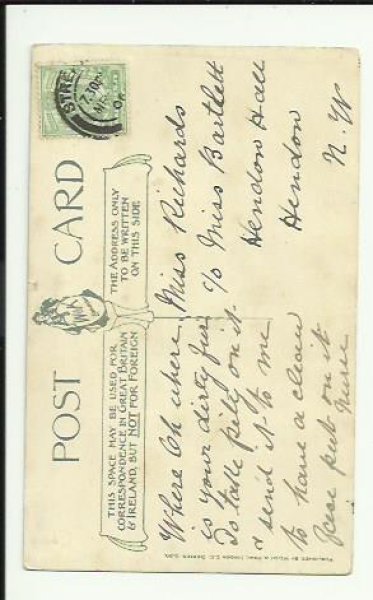 POST CARD
THIS SPACE MAY BE USED FOR
CORRESPONDENCE IN GREAT BRITAIN
& IRELAND, BUT NOT FOR FOREIGN
THE ADDRESS ONLY
TO BE WRITTEN
ON THIS SIDE
STRE
7.30P
Where Oh where
is your dirty fur
Do take pity on it
& send it to me
to have a clean
piece put on it
Nurse
Miss Richards
c/o Miss Bartlett
Hendon Hall
Hendon
N. W